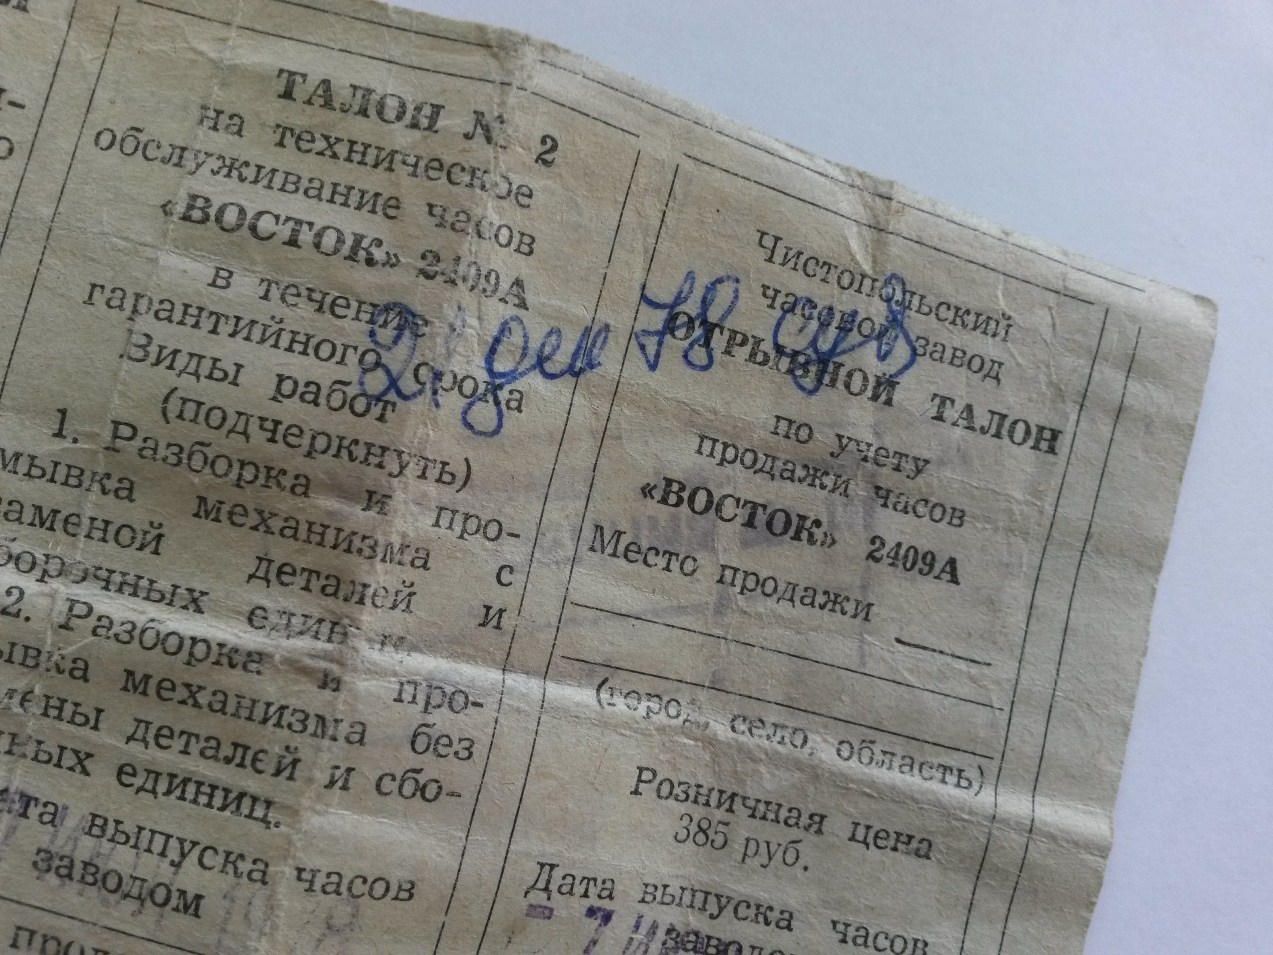 ТАЛОН № 2
на техническое
обслуживание часов
«ВОСТОК» 2409А
в течение
гарантийного срока
Виды работ
(подчеркнуть)
1. Разборка и про-
мывка механизма с
заменой деталей и
борочных единиц.
2. Разборка и про-
ывка механизма без
мены деталей и сбо-
ных единиц.
ата выпуска часов
заводом
2 дек 78
Чистопольский
часовой завод
ОТРЫВНОЙ ТАЛОН
по учету
продажи часов
«ВОСТОК» 2409А
Место продажи
(город, село, область)
Розничная цена
385 руб.
Дата выпуска часов